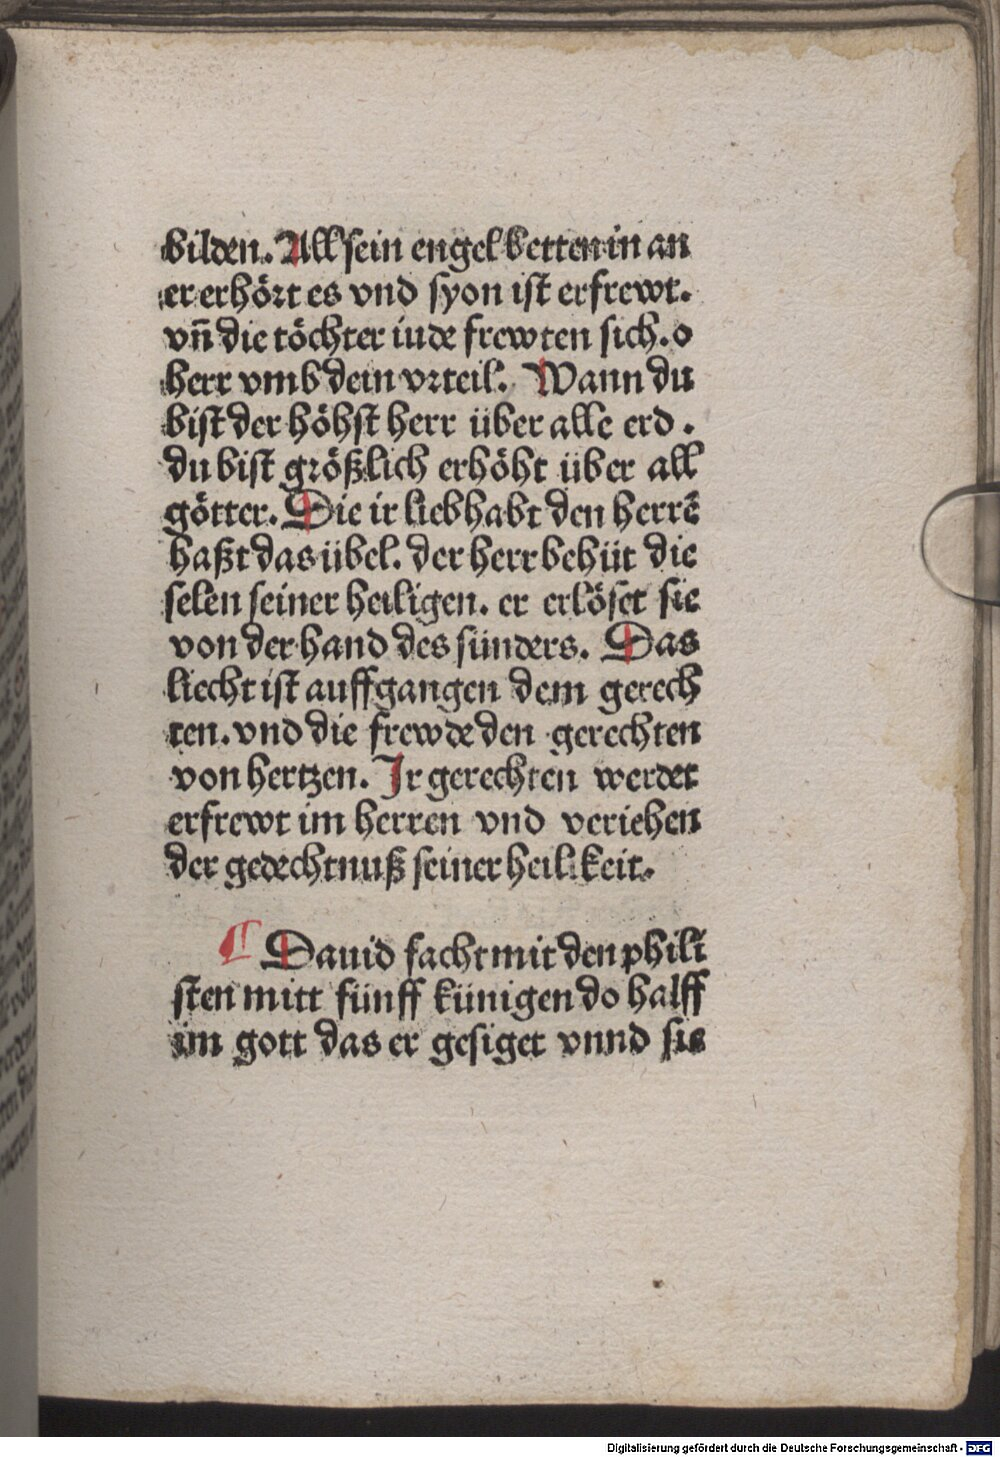 bilden. All sein engel betten in an
er erhört es vnd syon ist erfrewt.
vn̄ die töchter iude frewten sich. o
herr vmb dein vrteil. Wann du
bist der höhst herr über alle erd .
du bist größlich erhöht über all
götter. Die ir liebhabt den herrē
haßt das übel. der herr behüt die
selen seiner heiligen. er erlöset sie
von der hand des sünders. Das
liecht ist auffgangen dem gerech
ten. vnd die frewde den gerechten
von hertzen. Ir gerechten werdet
erfrewt im herren vnd veriehen
der gedechtnuß seiner heilikeit.
¶ Dauid facht mit den phili
sten mitt fünff künigen do halff
im gott das er gesiget vnnd sie
Digitalisierung gefördert durch die Deutsche Forschungsgemeinschaft - DFG